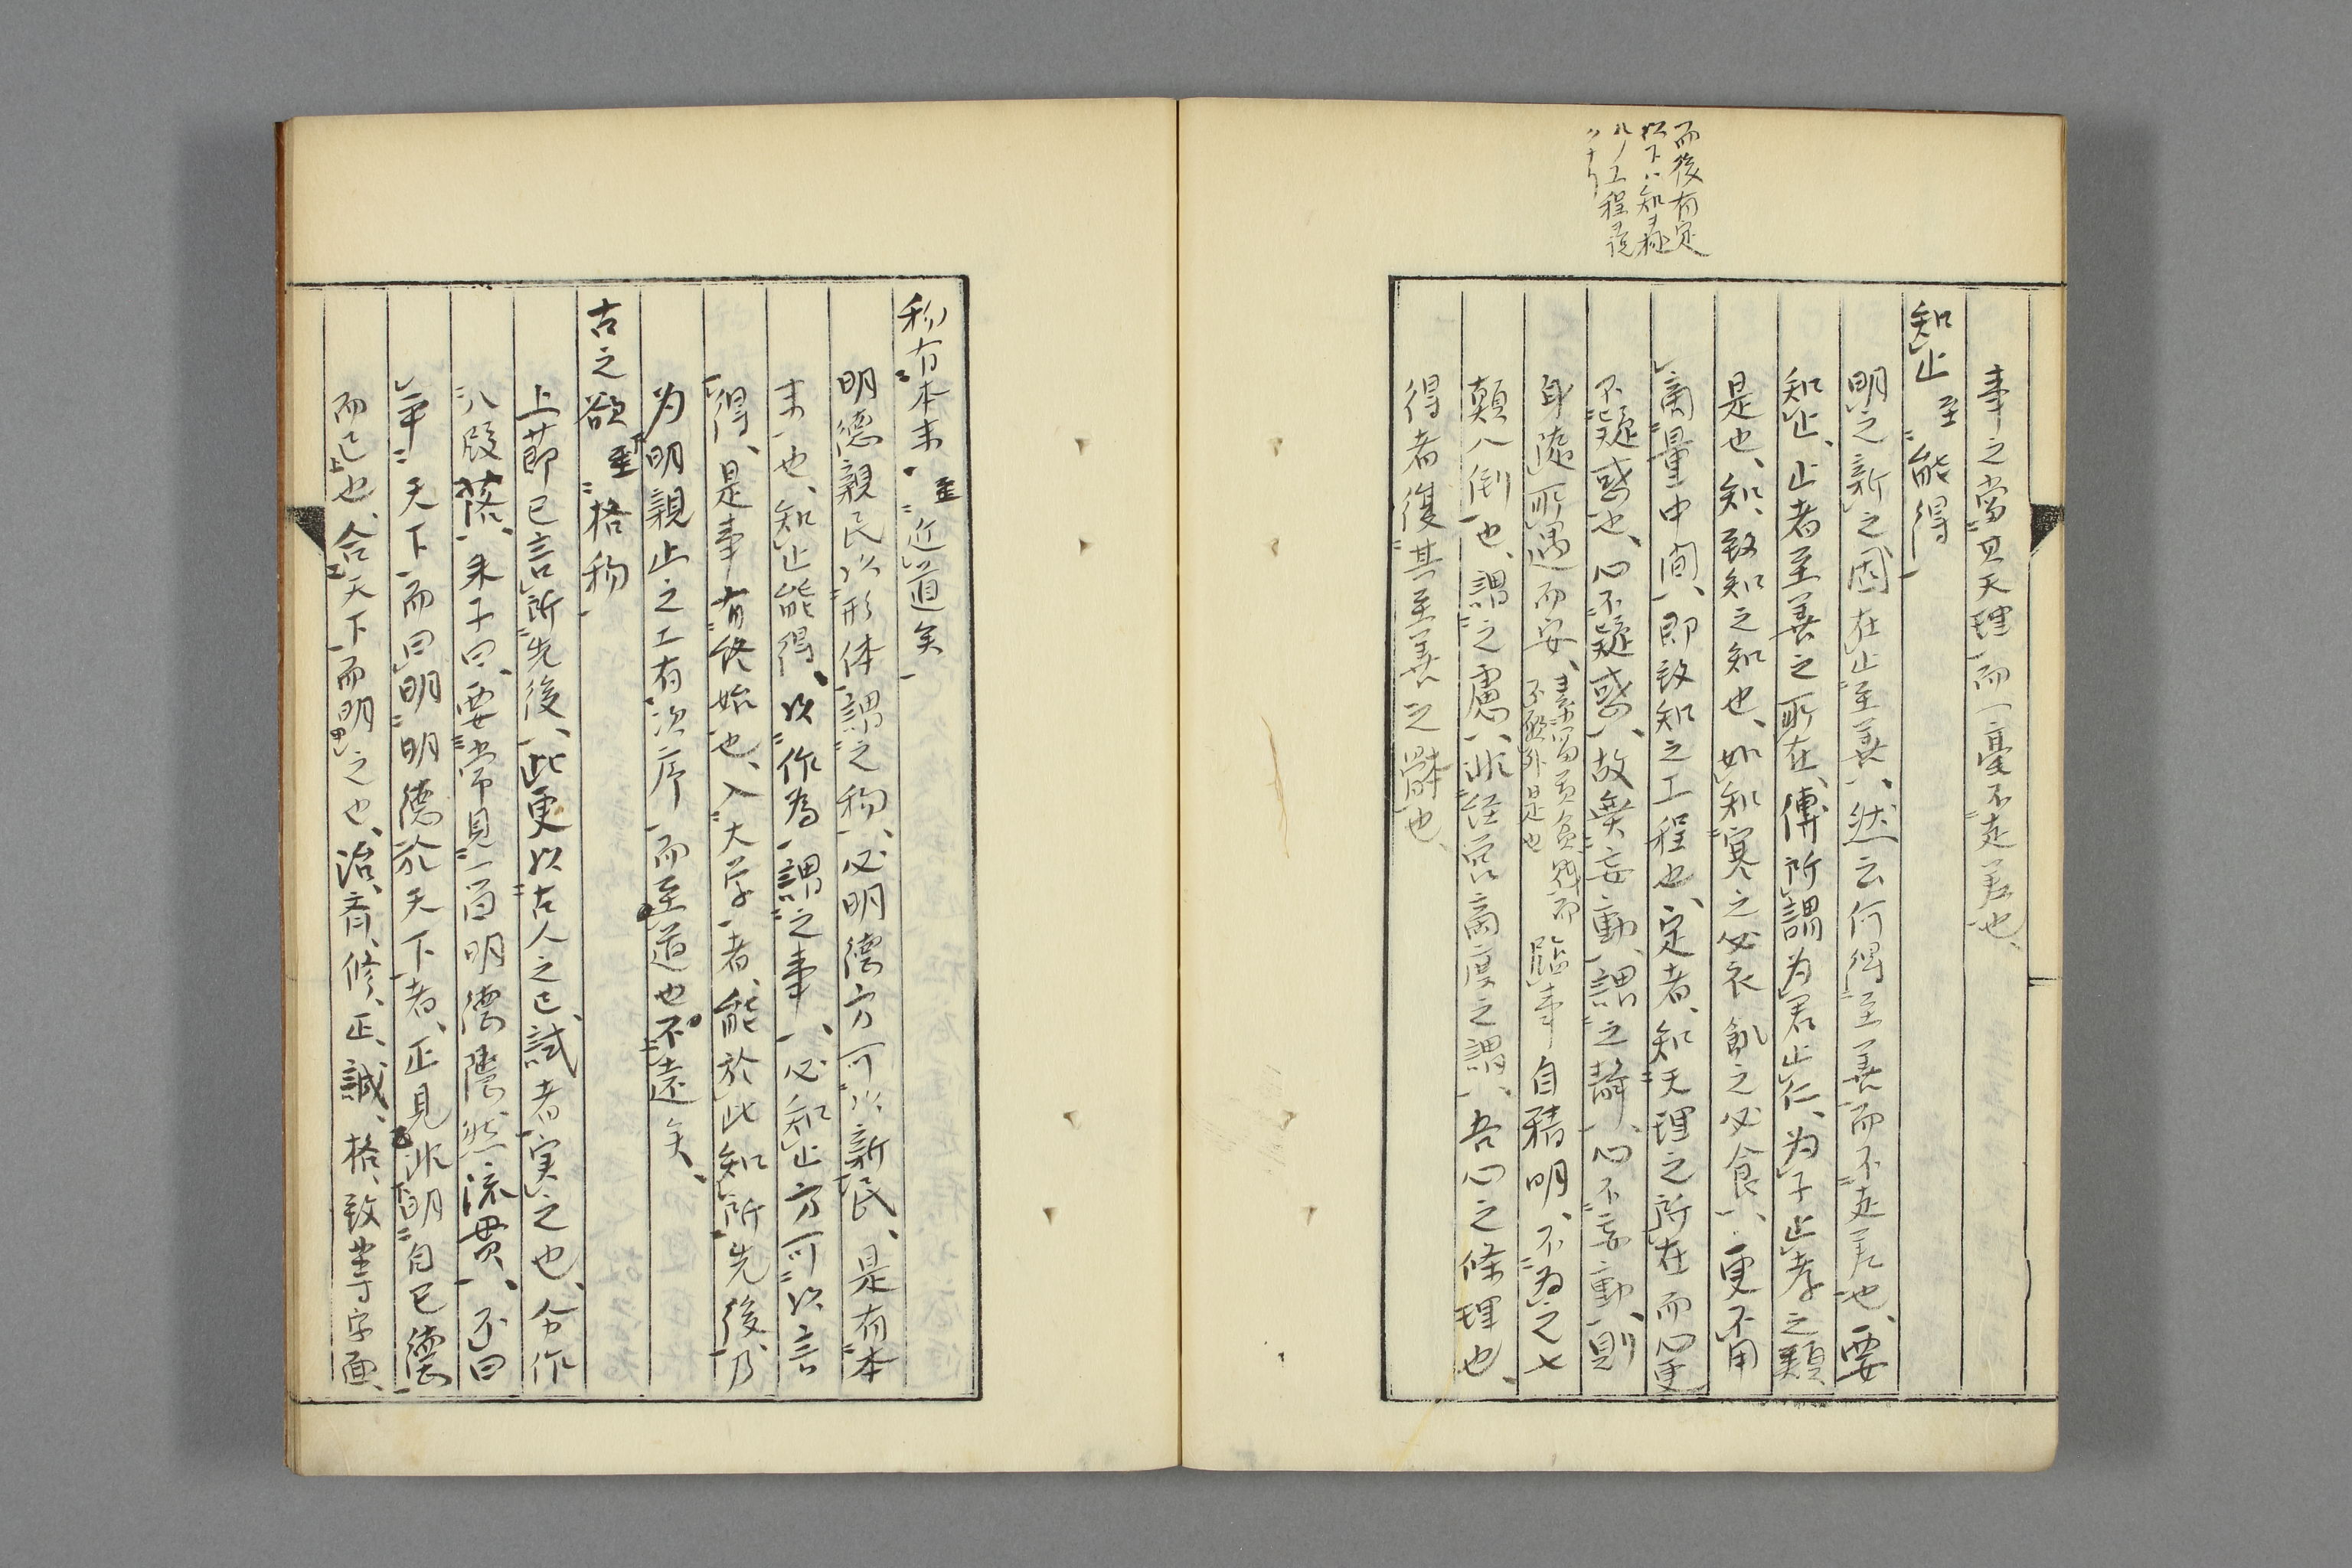 而後有定
以下ハ知ヲ極
ルノ工程ヲ說
クナリ
事之當其天理而一毫不走差也、
知止至能得
明之新之因在止至善、然云何得至善而不走差也、要
知止、止者至善之所在、傳所謂为君止仁、为子止孝之類
是也、知、致知之知也、如知寒之必衣飢之必食、更不用
商量中间、即致知之工程也、定者、知天理之所在而心更
不疑惑也、心不疑惑、故無妄動、謂之靜、心不妄動、則
身随所遇而安、素富貴貧賤而
不願外是也臨事自精明、不為之七
顛八倒也、謂之慮、非経営商度之謂、吾心之條理也、
得者復其至善之體也、
物有本末至近道矣
明德親民以形体謂之物、必明德方可以新民、是有本
末也、知止能得、以作為謂之事、必知止方可以言
得、是事有終始也、入大学者、能於此知所先後、乃
为明親止之工有次序而至道也不遠矣、
古之欲至格物
上節已言所先後、此更以古人之已試者実之也、分作
八段落、朱子曰、要常見一箇明德隱然流貫、不曰
平天下而曰明明德於天下者、正見非明自己德
而已也、合天下而明之也、治、齊、修、正、誠、格、致等字面、